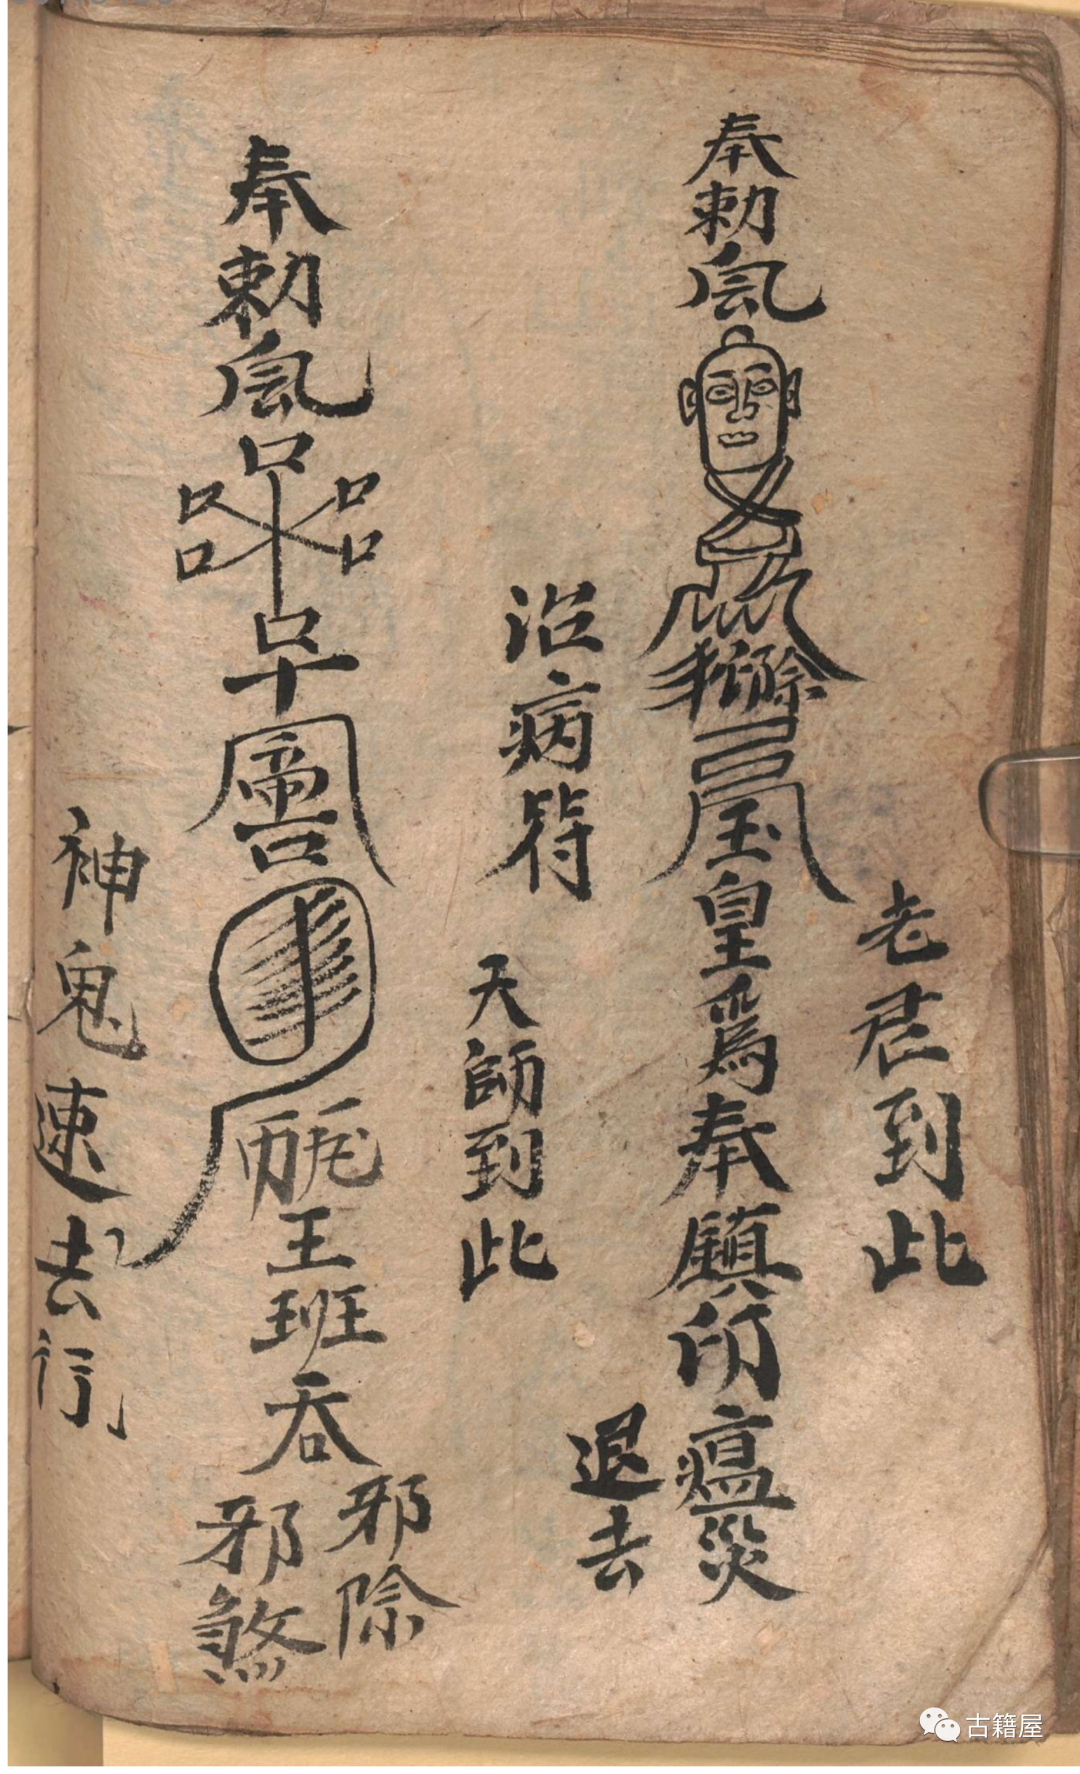 老君到此
奉勅
玉皇為奉鎮印瘟災
退去
治病符
天師到此
奉勅
王班吞
邪除
邪煞
神鬼速去行
古籍屋